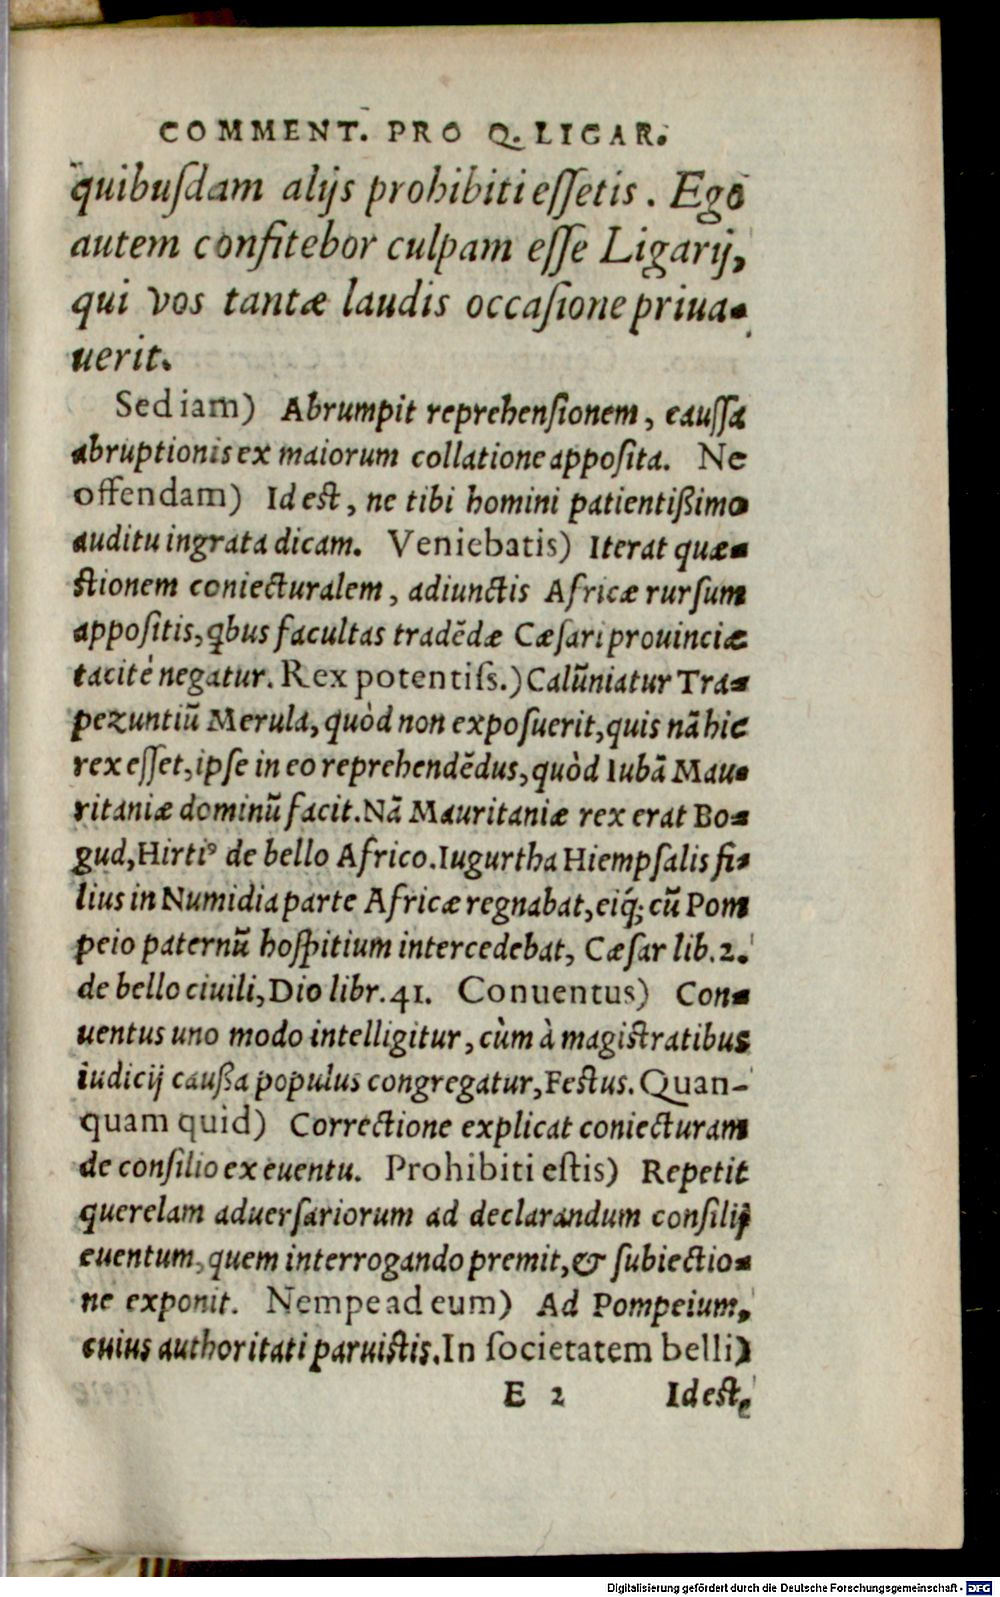 COMMENT. PRO Q. LIGAR.
quibuſdam alijs prohibiti eſſetis. Ego
autem confitebor culpam eſſe Ligarij,
qui vos tantæ laudis occaſione priua-
uerit.
Sed iam) Abrumpit reprehenſionem, cauſſa
abruptionis ex maiorum collatione appoſita. Ne
offendam) Id eſt, ne tibi homini patientiſsimo
auditu ingrata dicam. Veniebatis) Iterat quæ-
ſtionem coniecturalem, adiunctis Africæ rurſum
appoſitis, qbus facultas tradẽdæ Cæſari prouinciæ
tacitè negatur. Rex potentiſs.) Calũniatur Tra-
pezuntiũ Merula, quòd non expoſuerit, quis nã hic
rex eſſet, ipſe in eo reprehendẽdus, quòd Iubã Mau-
ritaniæ dominũ facit. Nã Mauritaniæ rex erat Bo-
gud, Hirtiꝰ de bello Africo. Iugurtha Hiempſalis fi-
lius in Numidia parte Africæ regnabat, eiq́; cũ Pom
peio paternũ hoſpitium intercedebat, Cæſar lib. 2.
de bello ciuili, Dio libr. 41. Conuentus) Con-
uentus uno modo intelligitur, cùm à magiſtratibus
iudicij cauſsa populus congregatur, Feſtus. Quan-
quam quid) Correctione explicat coniecturam
de conſilio ex euentu. Prohibiti eſtis) Repetit
querelam aduerſariorum ad declarandum conſilij
euentum, quem interrogando premit, & ſubiectio-
ne exponit. Nempe ad eum) Ad Pompeium,
cuius authoritati paruiſtis. In ſocietatem belli)
E 2 Id eſt,
Digitalisierung gefördert durch die Deutsche Forschungsgemeinschaft - DFG